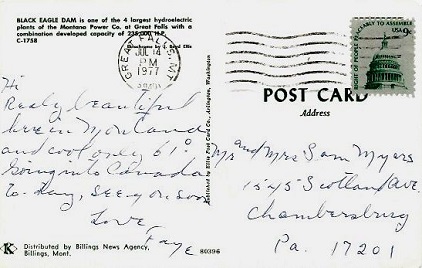 BLACK EAGLE DAM is one of the 4 largest hydroelectric
plants of the Montana Power Co. at Great Falls with a
combination developed capacity of 235,000 H.P.
C-1758
Ektachrome by J. Boyd Ellis
GREAT FALLS, MT
JUL 14
PM
1977
RIGHT OF PEOPLE PEACEABLY TO ASSEMBLE
USA 9c
POST CARD
Address
Hi
Really beautiful
here in Montana
and cool only 61°
Going into Canada
To-day, see you soon
Love,
Faye
Published by Ellis Post Card Co., Arlington, Washington
Mr and Mrs Sam Myers
1545 Scotland Ave.
Chambersburg
Pa. 17201
K
Distributed by Billings News Agency,
Billings, Mont.
80396